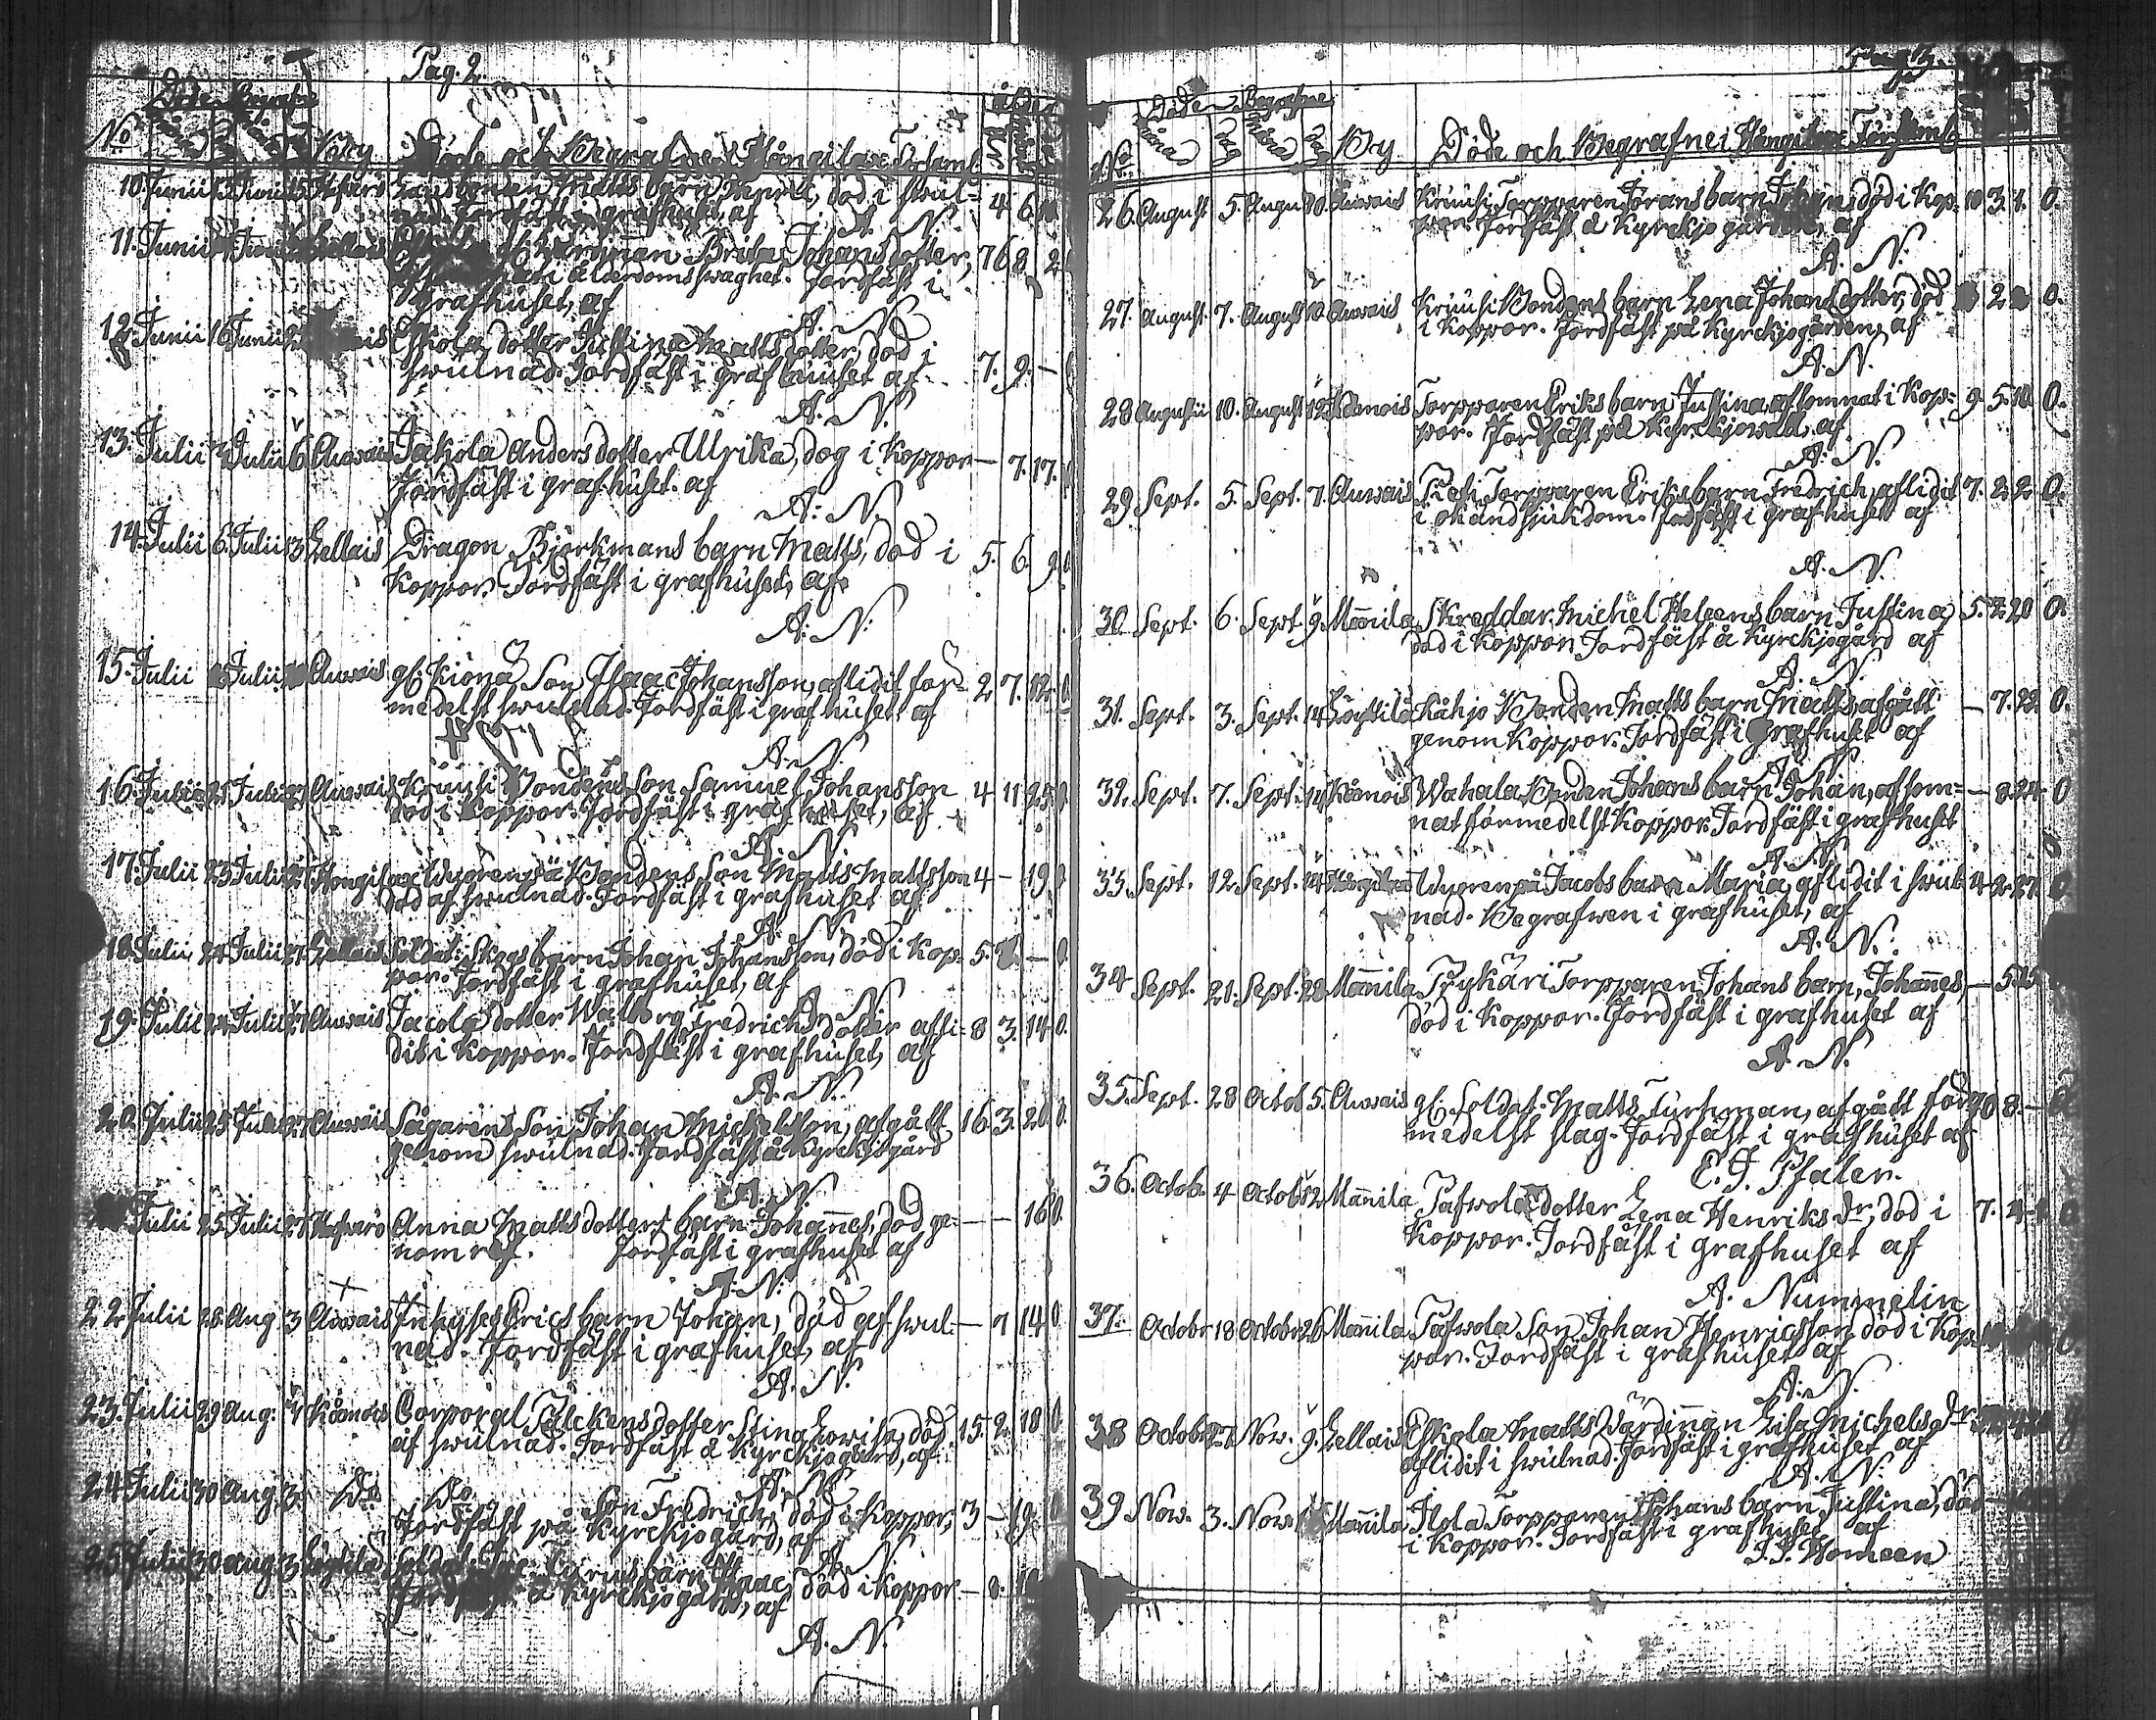 Pag. 2.
Döde Begrafne
No By Döde och Begrafne i Hångilax Församl
10. Junii Junii 15 barn Henric, död i swul- 4 6
nad. Jordfäst i grafhuset, af
A. N.
11. Junii Junii Brita Johansdotter, 76 8 2
ålderdoms swaghet. Jordfäst i
Grafhuset, af
A. N.
12. Junii 16 Junii Eskola dotter Justina Mattsdotter, död i 7. 9. —
swulnad. Jordfäst i grafhuuset af
A. N.
13. Julii Julii 6 Auwais Jakola Andersdotter Ulrika, dog i koppor — 7. 17.
Jordfäst i grafhuset. af
A. N.
14. Julii 6. Julii 13 Lellais Dragon Björkmans barn Matts, död i 5. 6. 9.
Koppor. Jordfäst i grafhuset, af
A. N.
15. Julii Julii Auwais gl. Kiona Son Isaac Johansson, aflidit för- 2 7. 12. 0
medelst swulnad. Jordfäst i grafhuset af
A. N.
16. Julii 21 Julii 27 Auwais Kriusi Bondens Son Samuel Johansson 4 11 25 0
död i Koppor. Jordfäst i grafhuset, af
A. N.
17. Julii 23 Julii 27 Hongilax Wuorenpä Bondens Son Matts Mattsson 4 — 19 0
död af swulnad. Jordfäst i grafhuset af
A. N.
18. Julii 24 Julii 27. Lellais Soldat: Skogs barn Johan Johansson, död i Kop- 5. — 0.
por. Jordfäst i grafhuset, af
A. N.
19. Julii 24 Julii 27 Auwais Jacola dotter Walborg Fredrichsdotter afli- 8 3. 14 0.
dit i Koppor. Jordfäst i grafhuset, af
A. N.
20. Julii 25 Julii 27 Auwais Sågarens Son Johan Michelsson, afgått 16 3. 20 0.
genom swulnad. Jordfäst å Kyrckjogård
A. N.
Julii 25 Julii 27 Anna Mattsdotters barn Johannes, död ge- — — 16 0.
nom ref. Jordfäst i grafhuset af
A. N.
22. Julii 28 Aug 3 Auwais Erics barn Johan, död af swul- — 7 14 0
nad. Jordfäst i grafhuset, af
A. N.
23. Julii 29 Aug. 4 Kåenois Corporal Falckens dotter Stina Lowisa, död 15. 2. 18 0
af swulnad. Jordfäst å Kyrckjogård, af
A. N.
24 Julii 30 Aug. 3. Do Do Son Fredrich, död i Koppor, 3 — 19. 0
Jordfäst på Kyrckjogård, af
A. N.
25 Julii 30 Aug 3 Soldat barn Isaac, död i Koppor — 8.
Jordfäst å Kyrckjogård, af
A. N.
Döde Begrafne
No Månad Dag Månad Dag By Döde och Begrafne i Hångilax Församl
26. August 5. August 10. Auwais Kriusi Torpparen Görans barn Johan, död i Kop- 10 3. 1. 0.
por. Jordfäst å Kyrckjogården, af
A. N.
27. August. 7. August 10 Auwais Kriusi Bondens barn Lena Johansdotter, död 2 0.
i Koppor. Jordfäst på Kyrckjogården, af
A. N.
28 Augusti 10. August 12 Kåenois Torpparen Eriks barn Justina, afsomnat i Kop- 9. 5. 10. 0.
por. Jordfäst på Kyrckjowall, af
A. N.
29 Sept. 5. Sept. 7. Auwais Torpparen Eriks barn Fredrich, aflidit 7. 2. 2. 0.
i okänd sjukdom. Jordfäst i grafhuset af
A. N.
30. Sept. 6. Sept. 9. Mannila Skreddar. Michel Heleens barn Justina, 5. 2. 20 0.
död i Koppor. Jordfäst å Kyrckjogård af
A. N.
31. Sept. 3. Sept. 14 Löyttilä Kåhjo Bonden Matts barn Matts, afgått — 7. 22. 0.
genom Koppor. Jordfäst i Grafhuset af
A. N.
32. Sept. 7. Sept. 14 Kåenois Wahala Bonden Johans barn Johan, afsom- — 8. 24. 0
nat förmedelst Koppor. Jordfäst i grafhuset
A. N.
33. Sept. 12. Sept. 14 Hångilax Wuorenpä Jacobs barn Maria, aflidit i swul- 4 2. 27. 0
nad. Begrafwen i grafhuset, af
A. N.
34 Sept. 21. Sept. 28 Mannila Tykäri Torpparen Johans barn, Johannes, — 5. 15
död i Koppor. Jordfäst i grafhuset af
A. N.
35. Sept. 28 Octob 5. Auwais gl. Soldat. Matts Turkman, afgått för- 70 8. —
medelst slag. Jordfäst i grafhuset af
E. J. Pfaler.
36. Octob. 4 Octob 12 Mannila Tafwola dotter Lena Henriks Dr, död i 7. 4
Koppor. Jordfäst i grafhuset af
A. Nummelin
37. Octobr 18 Octobr 26 Mannila Tafwola Son Johan Henricsson, död i Kop-
por. Jordfäst i grafhuset af
A. N.
38 Octobr 27. Now. 9. Lellais Eskola Matts Wärdinnan Lisa Michels Dr
aflidit i swulnad. Jordfäst i grafhuset af
A. N.
39 Now. 3. Now. Mannila Ilola Torpparen Johans barn Justina, död
i Koppor. Jordfäst i grafhuset af
J. J. Homeen